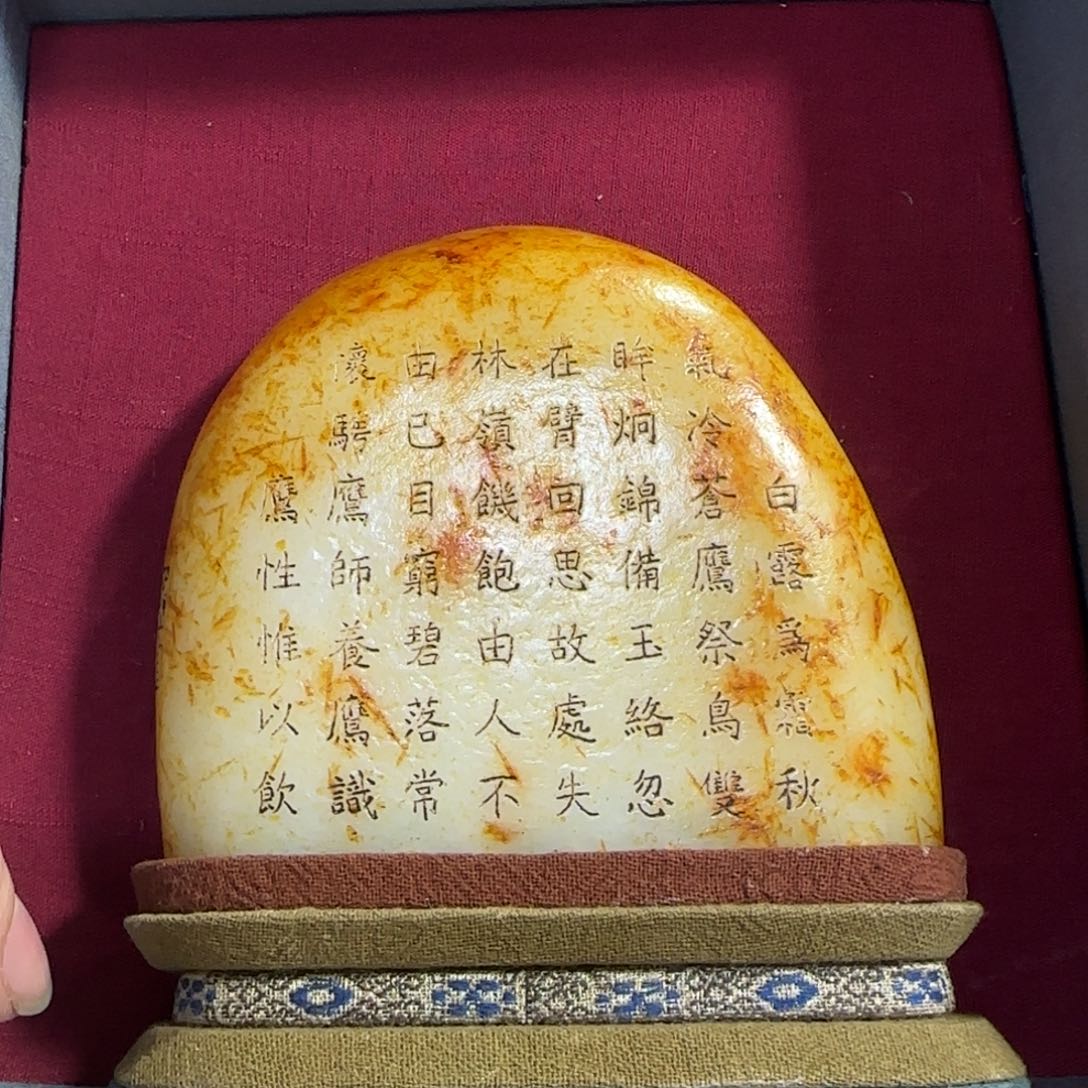 白露為霜秋
氣冷蒼鷹祭鳥雙
眸炯錦備玉絡忽
在臂回思故處失
林嶺饑飽由人不
由已目窮碧落常
懷騁鷹師養鷹識
鷹性惟以飲